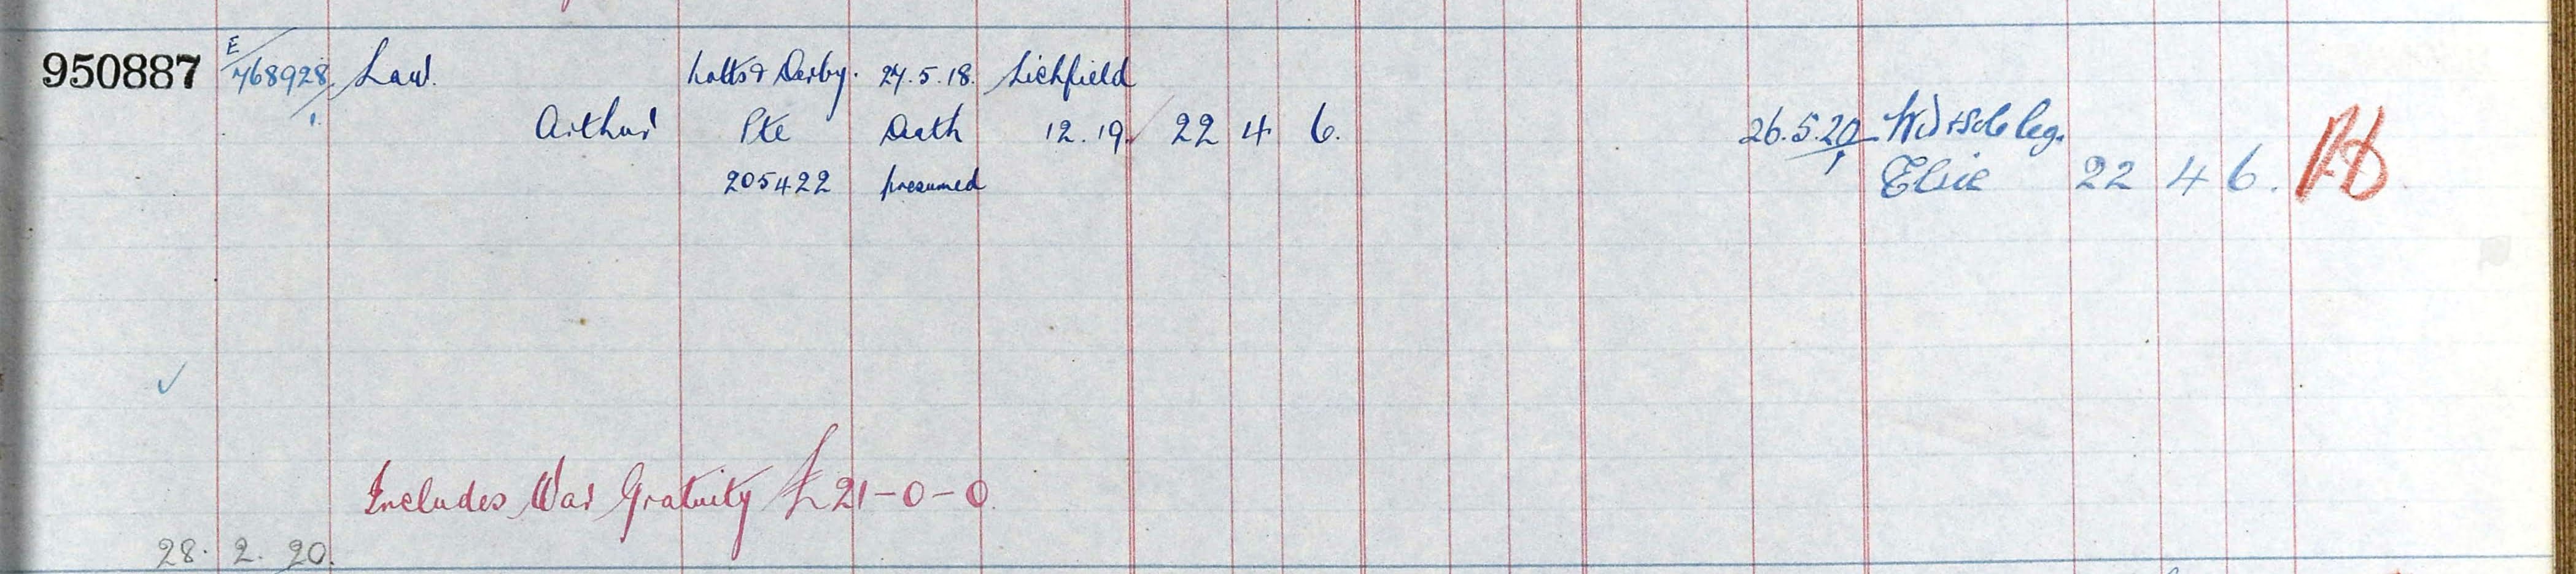 950887 E/768928/1. Law. Notts & Derby. 27.5.18. Lichfield
Arthur Pte Death 12.19. 22 4 6. 26.5.20 Wid & Sole Leg.
205422 presumed Elsie 22 4 6.
Includes War Gratuity £21-0-0
28. 2. 20.